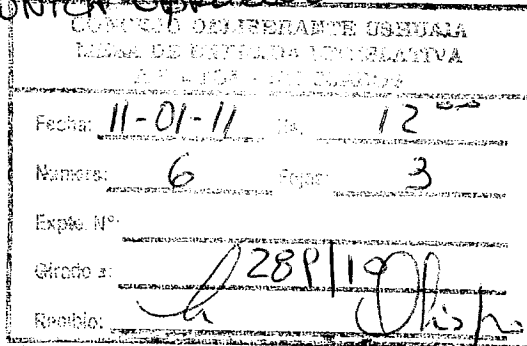 CONCEJO DELIBERANTE USHUAIA
MESA DE ENTRADA LEGISLATIVA
Fecha: 11-01-11 Hs. 12 00
Numero: 6 Fojas: 3
Expte. Nº:
Girado a: 289/10
Recibio: